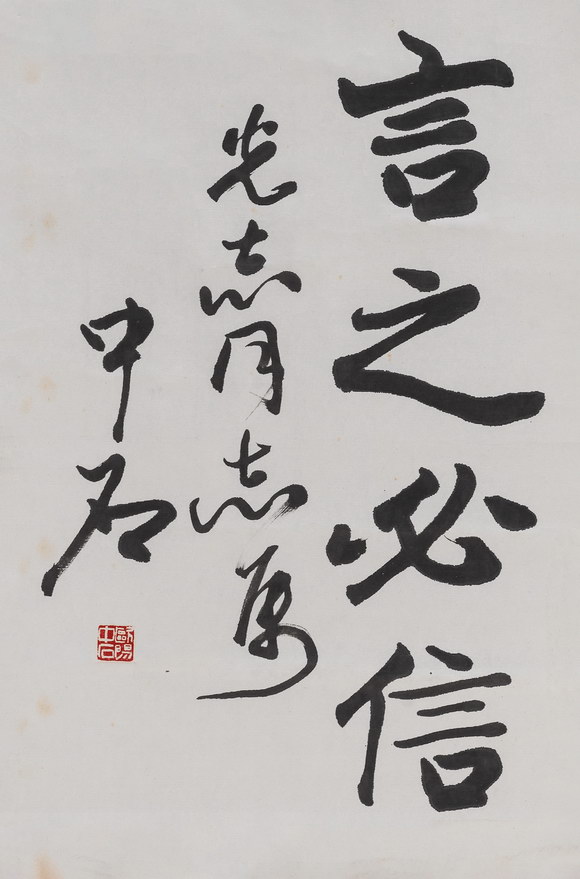 言之必信
光志同志属
中石
歐陽中石